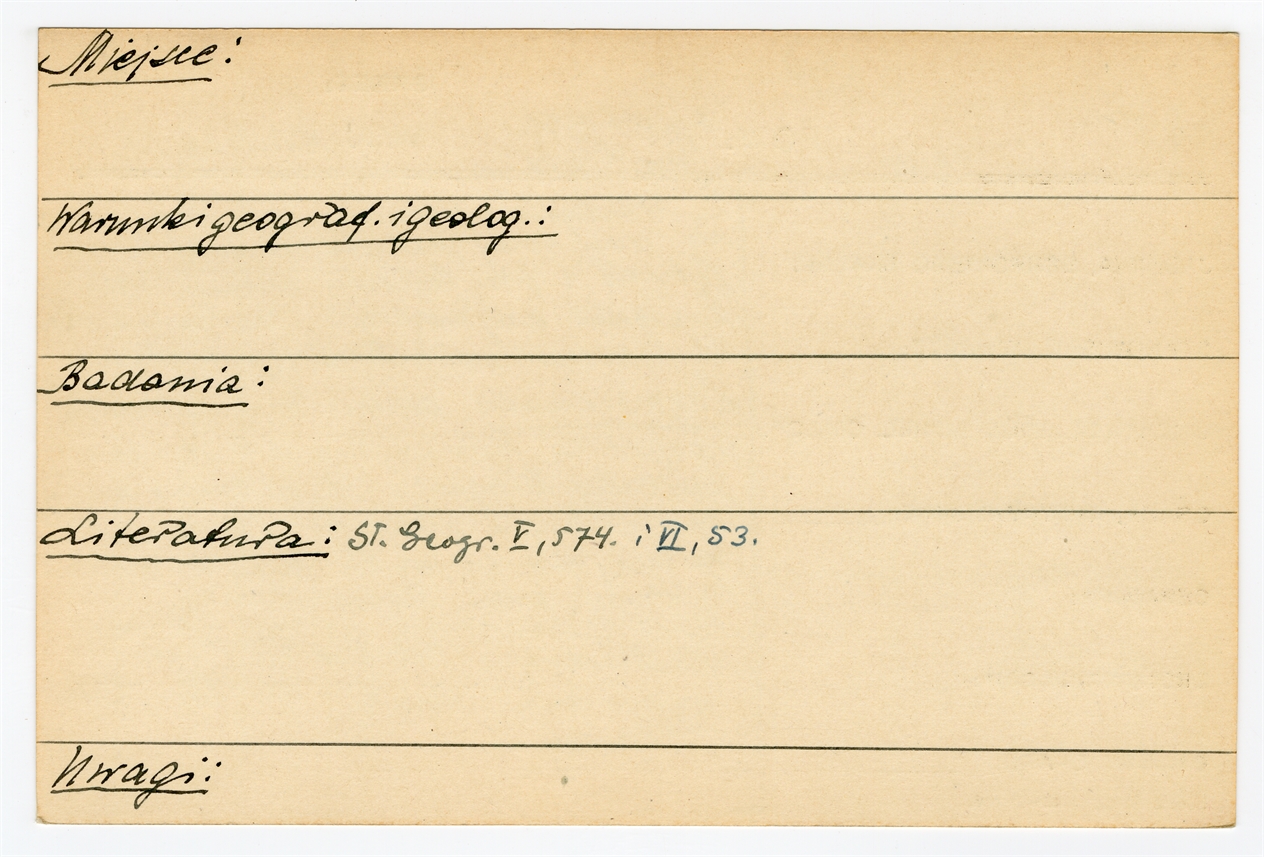 Miejsce:
Warunki geograf. i geolog.:
Badania:
Literatura: Sł. Geogr. V, 574. i VI, 53.
Uwagi: